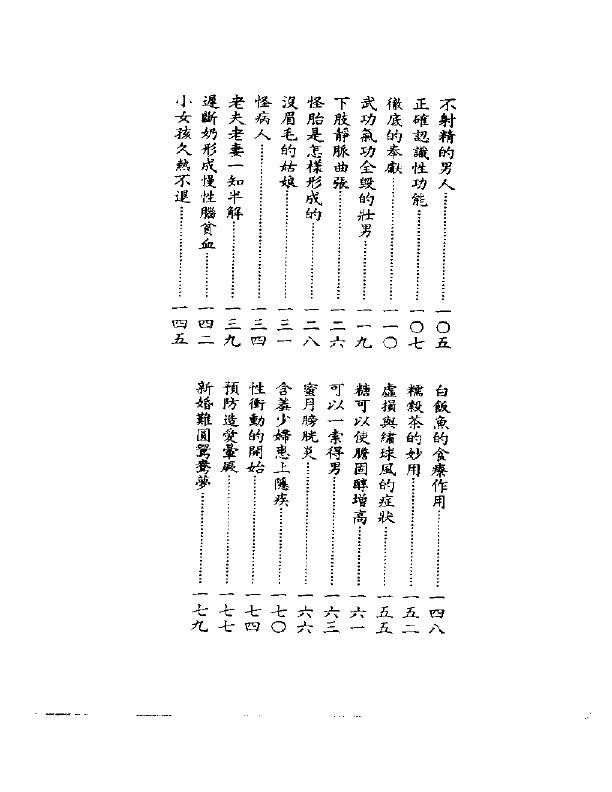 不射精的男人…………一〇五
正確認識性功能…………一〇七
徹底的奉獻…………一一〇
武功氣功全毀的壯男…………一一九
下肢靜脈曲張…………一二六
怪胎是怎樣形成的…………一二八
沒眉毛的姑娘…………一三一
怪病人…………一三四
老夫老妻一知半解…………一三九
遲斷奶形成慢性腦貧血…………一四二
小女孩久熱不退…………一四五
白飯魚的食療作用…………一四八
糯穀茶的妙用…………一五二
虛損與繡球風的症狀…………一五五
糖可以使膽固醇增高…………一六一
可以一索得男…………一六三
蜜月膀胱炎…………一六六
含羞少婦患上隱疾…………一七〇
性衝動的開始…………一七四
預防造愛暈厥…………一七七
新婚難圓鴛鴦夢…………一七九